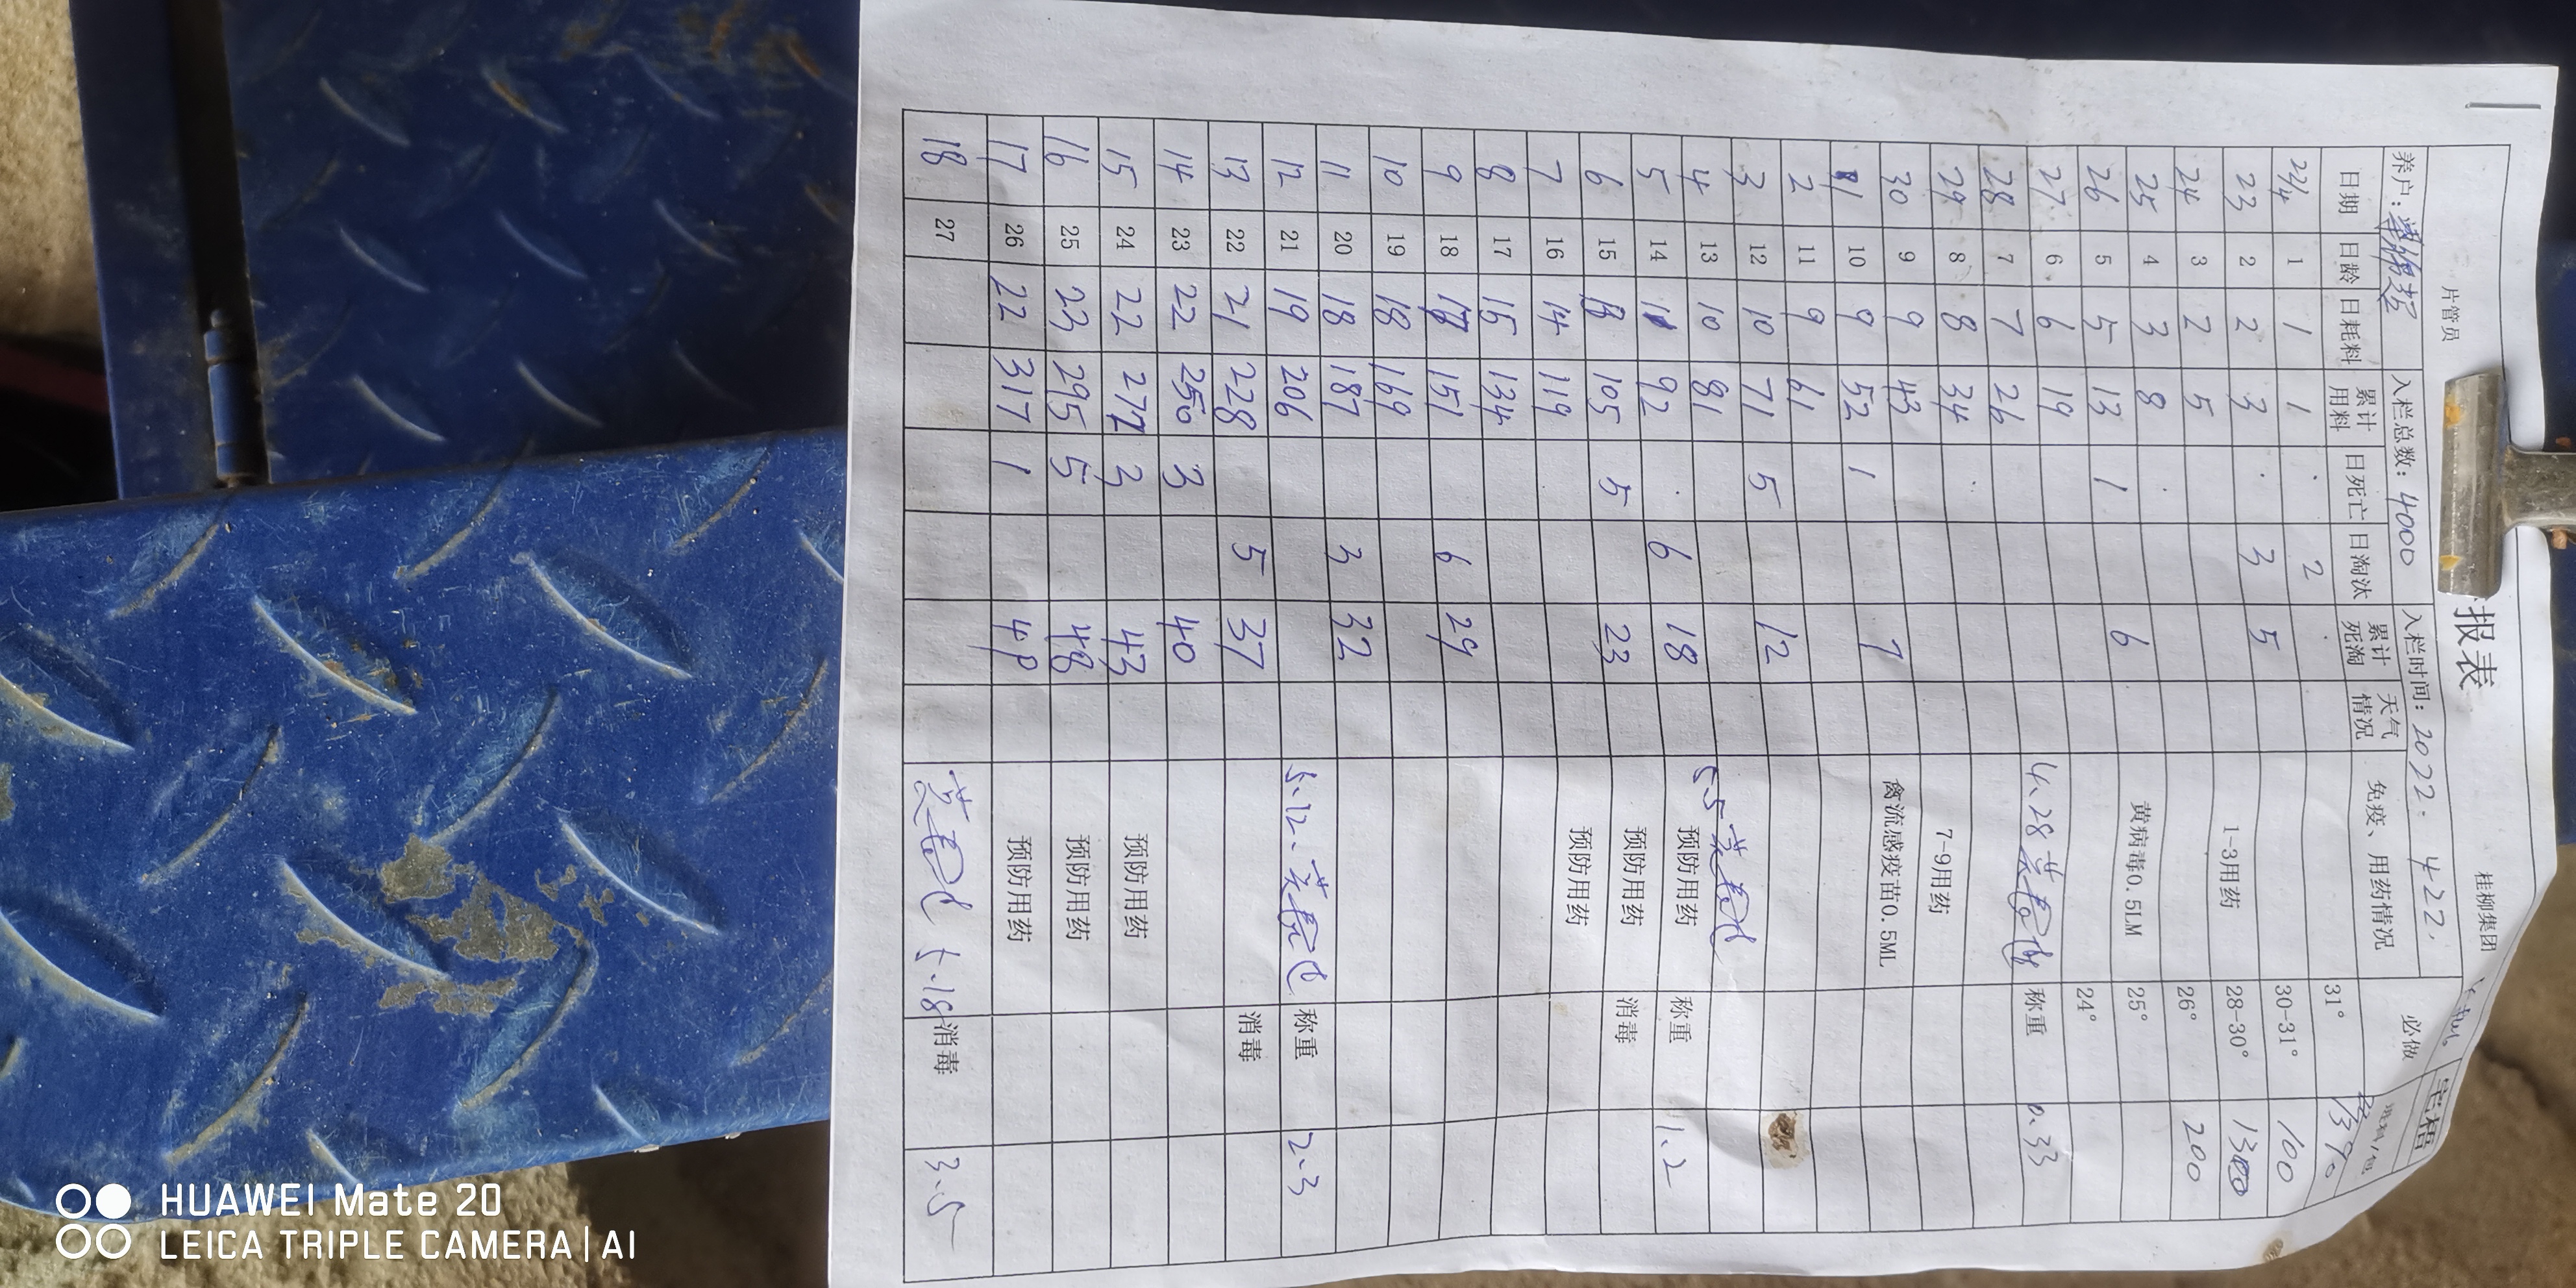 桂柳集团
报表
片管员
养户: 入栏总数: 4000 入栏时间: 2022. 4 22. 必做
日期 日龄 日耗料 累计用料 日死亡 日淘汰 累计死淘 天气情况 免疫、用药情况
22/4 1 1 1 2 31°
23 2 2 3 3 5 30-31° 100
24 3 2 5 1-3用药 28-30°
25 4 3 8 26° 200
26 5 5 13 1 6 黄病毒0.5LM 25°
27 6 6 19 24°
28 7 7 26 4.28 称重 0.33
29 8 8 34
30 9 9 43 7-9用药
1 10 9 52 1 7 禽流感疫苗0.5ML
2 11 9 61
3 12 10 71 5 12
4 13 10 81
5 14 11 92 6 18 预防用药 称重 1.2
6 15 13 105 5 23 预防用药 消毒
7 16 14 119 预防用药
8 17 15 134
9 18 17 151 6 29
10 19 18 169
11 20 18 187 3 32
12 21 19 206 5.12. 称重 2.3
13 22 21 228 5 37 消毒
14 23 22 250 3 40
15 24 22 272 3 43 预防用药
16 25 23 295 5 48 预防用药
17 26 22 317 1 49 预防用药
18 27 5.18 消毒 3.5
HUAWEI Mate 20
LEICA TRIPLE CAMERA | AI